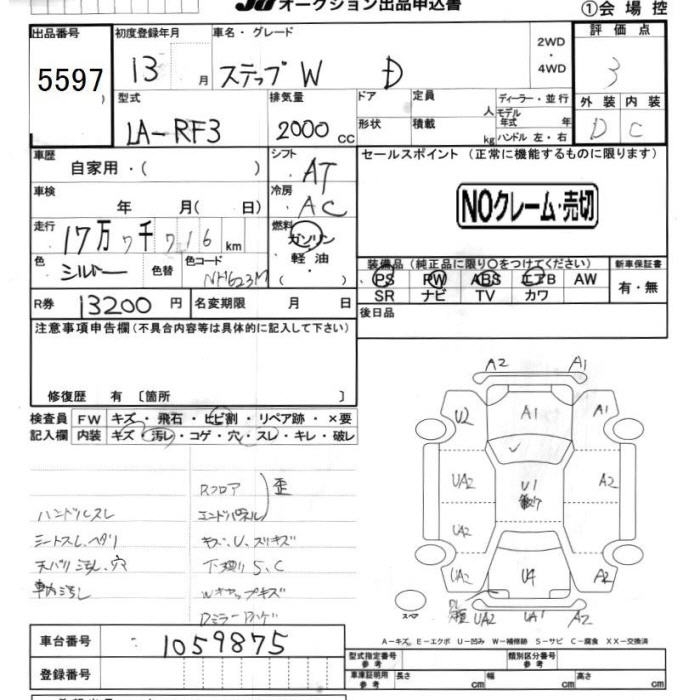 オークション出品申込書
①会場控
出品番号
5597
初度登録年月
13 月
車名・グレード
ステップW D
2WD
・
4WD
評価点
3
型式
LA-RF3
排気量
2000 cc
ドア
定員
人
ディーラー・並行
モデル年式 年
形状
積載
kg
ハンドル 左・右
外装 内装
D C
車歴
自家用・( )
シフト
AT
セールスポイント (正常に機能するものに限ります)
NOクレーム・売切
車検
年 月( 日)
冷房
AC
走行
17万7千716 km
燃料
ガソリン
軽油
( )
色
シルバー
色替
色コード
NH623M
装備品(純正品に限り○をつけてください)
新車保証書
PS PW ABS エアB AW
SR ナビ TV カワ
有・無
R券 13200 円
名変期限 月 日
後日品
注意事項申告欄(不具合内容等は具体的に記入して下さい)
修復歴 有 〔箇所 〕
検査員 FW キズ・飛石・ヒビ割・リペア跡・×要
記入欄 内装 キズ・汚レ・コゲ・穴・スレ・キレ・破レ
Rフロア
歪
ハンドルスレ
エンドパネル
シートスレ、ヘタリ
キズ、U、スリキズ
天バリ汚レ、穴
下廻りS、C
車内汚レ
A2 A1
U2 A1 A1
UA2 U1 A2
UA2
UA2 U4 A2
UA2 UA1 A2
スペア
A-キズ E-エクボ U-凹み W-補修跡 S-サビ C-腐食 XX-交換済
車台番号 1059875
型式指定番号 参考
類別区分番号 参考
登録番号
車庫証明用 参考
長さ cm
幅 cm
高さ cm